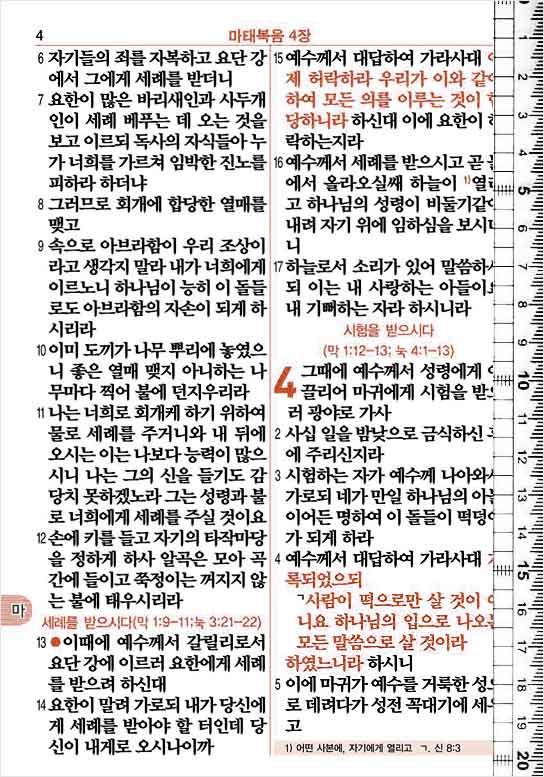 4
마태복음 4장
6 자기들의 죄를 자복하고 요단 강
에서 그에게 세례를 받더니
7 요한이 많은 바리새인과 사두개
인이 세례 베푸는 데 오는 것을
보고 이르되 독사의 자식들아 누
가 너희를 가르쳐 임박한 진노를
피하라 하더냐
8 그러므로 회개에 합당한 열매를
맺고
9 속으로 아브라함이 우리 조상이
라고 생각지 말라 내가 너희에게
이르노니 하나님이 능히 이 돌들
로도 아브라함의 자손이 되게 하
시리라
10 이미 도끼가 나무 뿌리에 놓였으
니 좋은 열매 맺지 아니하는 나
무마다 찍어 불에 던지우리라
11 나는 너희로 회개케 하기 위하여
물로 세례를 주거니와 내 뒤에
오시는 이는 나보다 능력이 많으
시니 나는 그의 신을 들기도 감
당치 못하겠노라 그는 성령과 불
로 너희에게 세례를 주실 것이요
12 손에 키를 들고 자기의 타작마당
을 정하게 하사 알곡은 모아 곡
간에 들이고 쭉정이는 꺼지지 않
는 불에 태우시리라
마
세례를 받으시다(막 1:9-11;눅 3:21-22)
13 ●이때에 예수께서 갈릴리로서
요단 강에 이르러 요한에게 세례
를 받으려 하신대
14 요한이 말려 가로되 내가 당신에
게 세례를 받아야 할 터인데 당
신이 내게로 오시나이까
15 예수께서 대답하여 가라사대
제 허락하라 우리가 이와 같이
하여 모든 의를 이루는 것이
당하니라 하신대 이에 요한이
락하는지라
16 예수께서 세례를 받으시고 곧
에서 올라오실쌔 하늘이 1)열
고 하나님의 성령이 비둘기같이
내려 자기 위에 임하심을 보시
니
17 하늘로서 소리가 있어 말씀하
되 이는 내 사랑하는 아들이
내 기뻐하는 자라 하시니라
시험을 받으시다
(막 1:12-13; 눅 4:1-13)
4 그때에 예수께서 성령에게
끌리어 마귀에게 시험을 받
러 광야로 가사
2 사십 일을 밤낮으로 금식하신
에 주리신지라
3 시험하는 자가 예수께 나아와
가로되 네가 만일 하나님의 아
이어든 명하여 이 돌들이 떡덩이
가 되게 하라
4 예수께서 대답하여 가라사대
록되었으되
ㄱ사람이 떡으로만 살 것이
니요 하나님의 입으로 나오는
모든 말씀으로 살 것이라
하였느니라 하시니
5 이에 마귀가 예수를 거룩한 성
로 데려다가 성전 꼭대기에 세
고
1) 어떤 사본에, 자기에게 열리고 ㄱ. 신 8:3
1
2
3
4
5
6
7
8
9
10
11
12
13
14
15
16
17
18
19
20